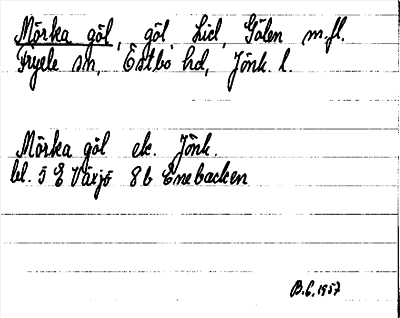 Mörka göl, göl Lid, Gölen m.fl.
Fryele sn, Östbo hd, Jönk. l.
Mörka göl ek. Jönk.
bl. 5 E Växjö 8b Enebacken
B.G. 1957